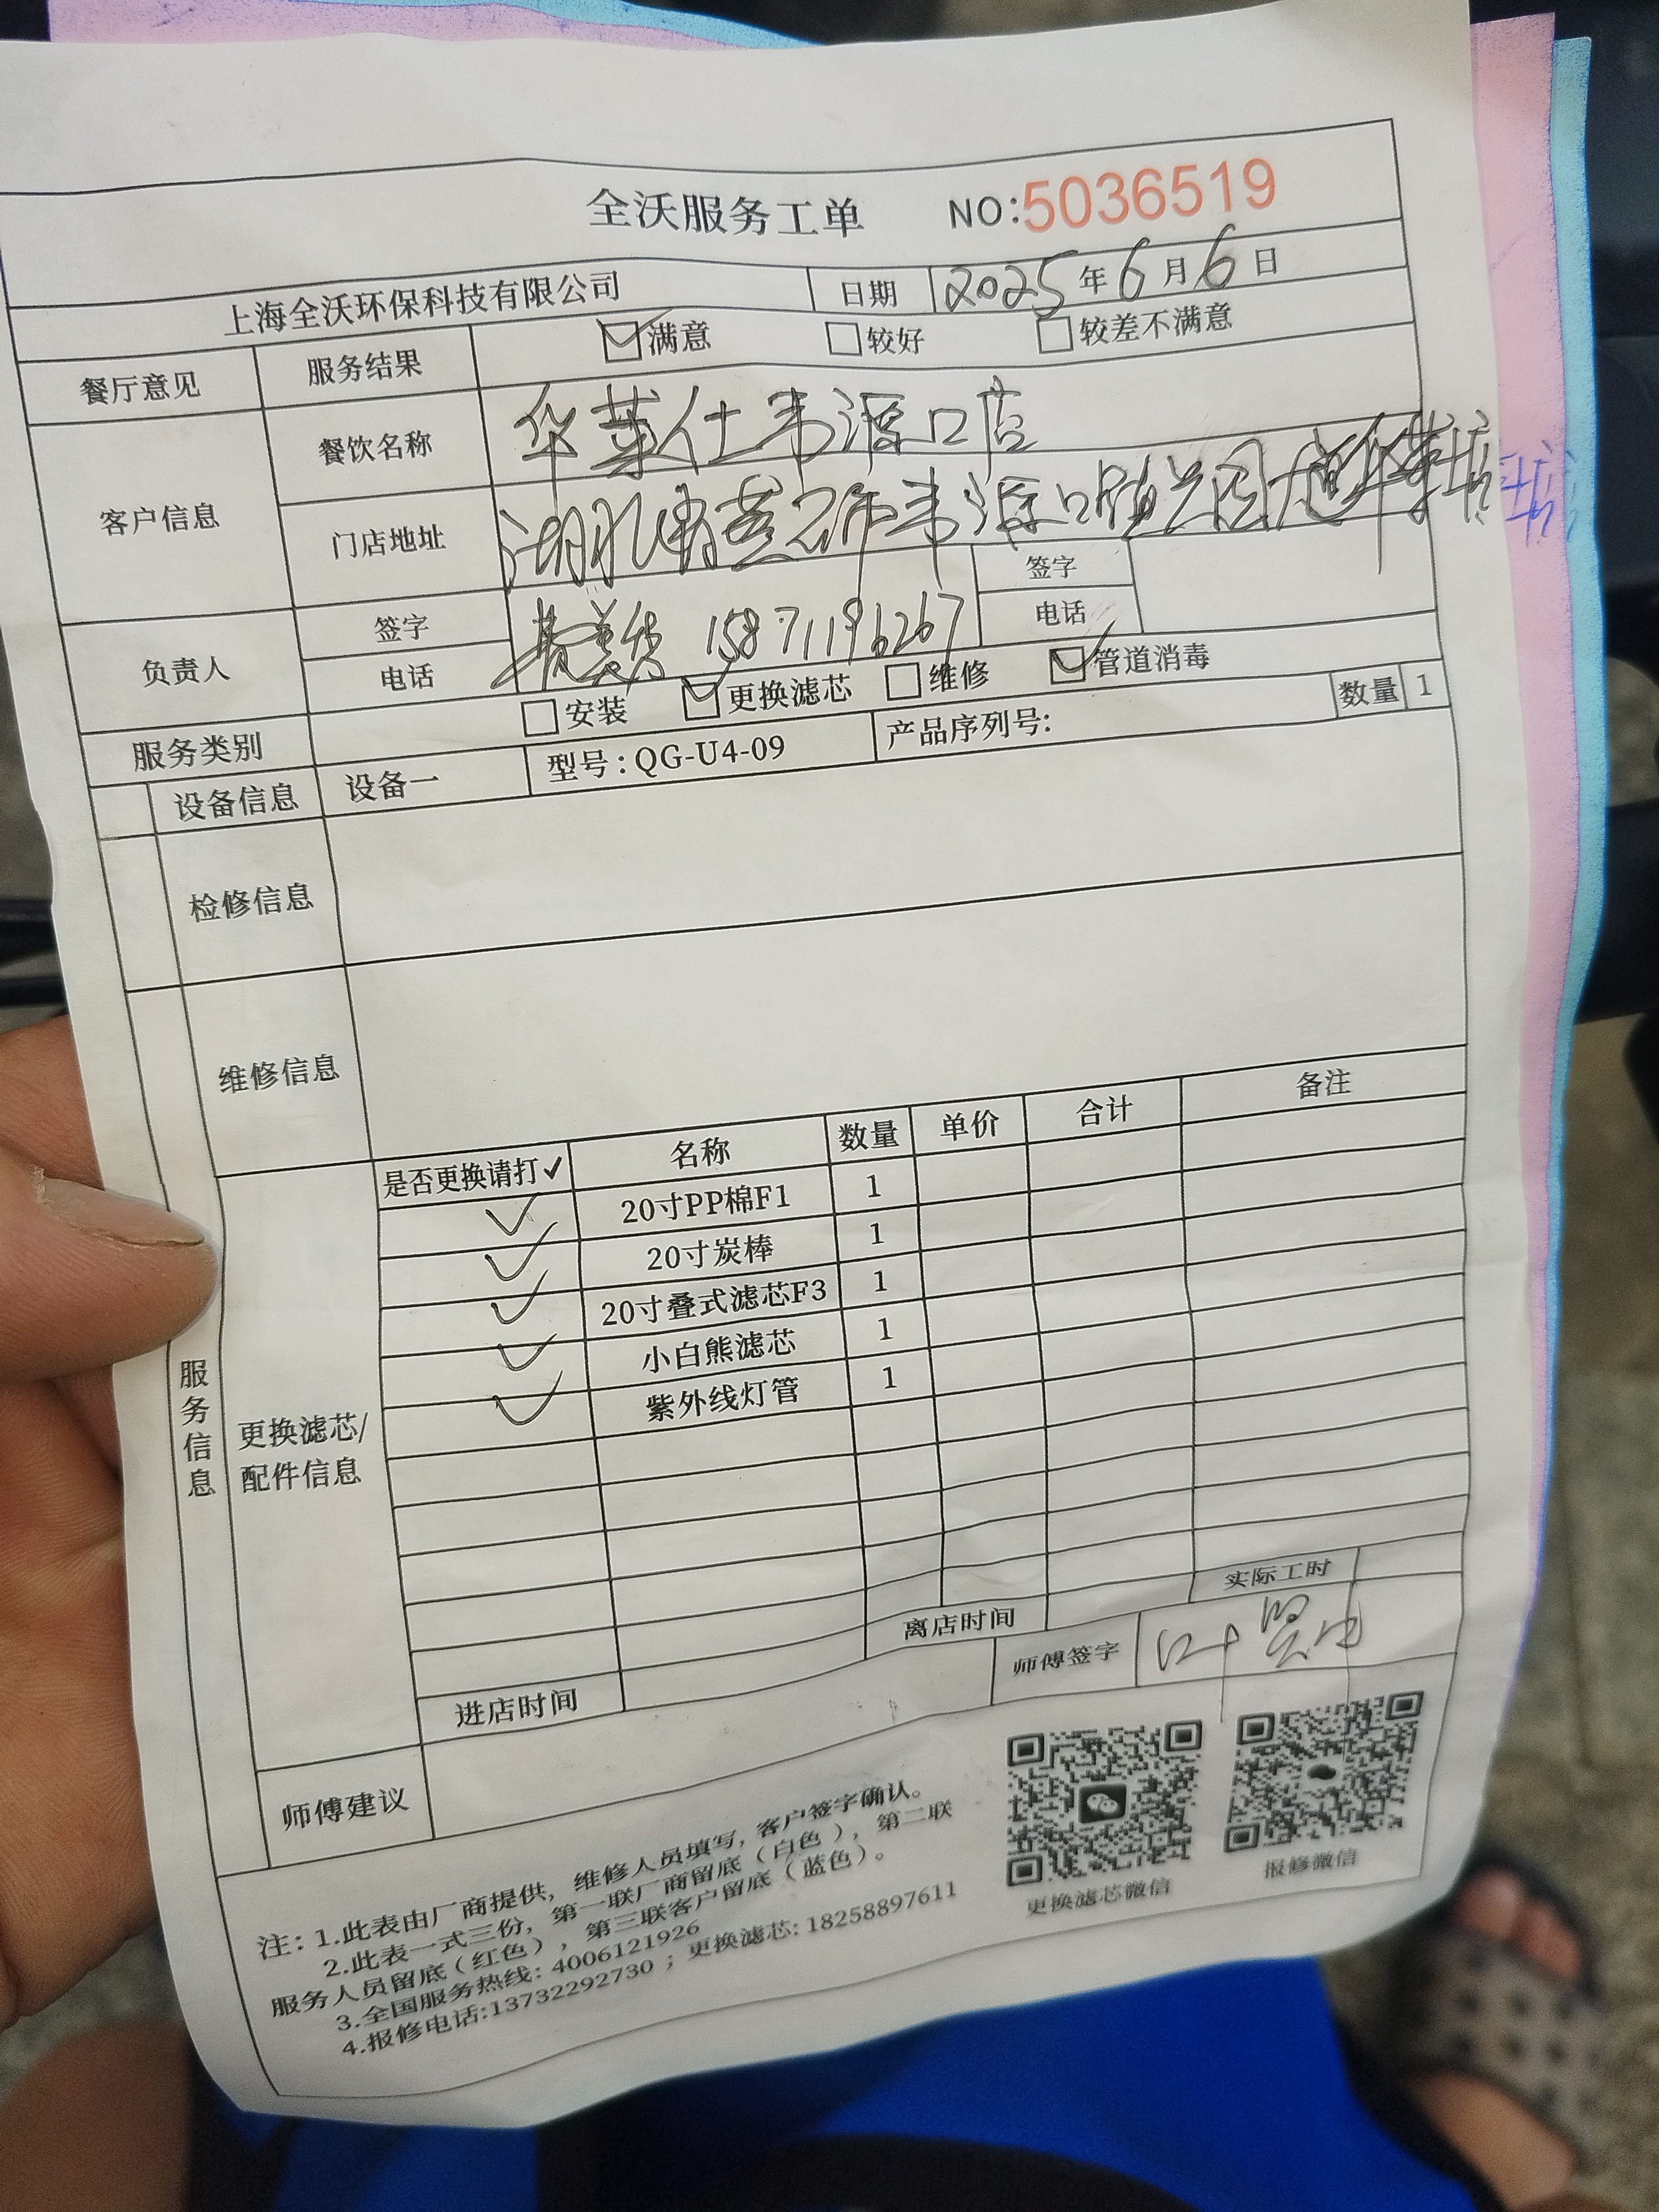 全沃服务工单 NO:5036519
上海全沃环保科技有限公司 日期 2025年6月6日
餐厅意见 服务结果 满意 较好 较差不满意
客户信息 餐饮名称 华莱仕韦源口店
门店地址 湖北省黄石市韦源口镇 广场华莱士店
负责人 签字 电话 15871196267 签字 电话
服务类别 安装 更换滤芯 维修 管道消毒
设备信息 设备一 型号:QG-U4-09 产品序列号: 数量 1
检修信息
维修信息
服务信息
更换滤芯/
配件信息
是否更换请打✓ 名称 数量 单价 合计 备注
✓ 20寸PP棉F1 1
✓ 20寸炭棒 1
✓ 20寸叠式滤芯F3 1
✓ 小白熊滤芯 1
✓ 紫外线灯管 1
进店时间 离店时间 实际工时
师傅建议 师傅签字 叶
注: 1.此表由厂商提供, 维修人员填写, 客户签字确认。
2.此表一式三份, 第一联厂商留底(白色), 第二联
服务人员留底(红色), 第三联客户留底(蓝色)。
3.全国服务热线: 4006121926
4.报修电话:13732292730 ; 更换滤芯: 18258897611
更换滤芯微信
报修微信